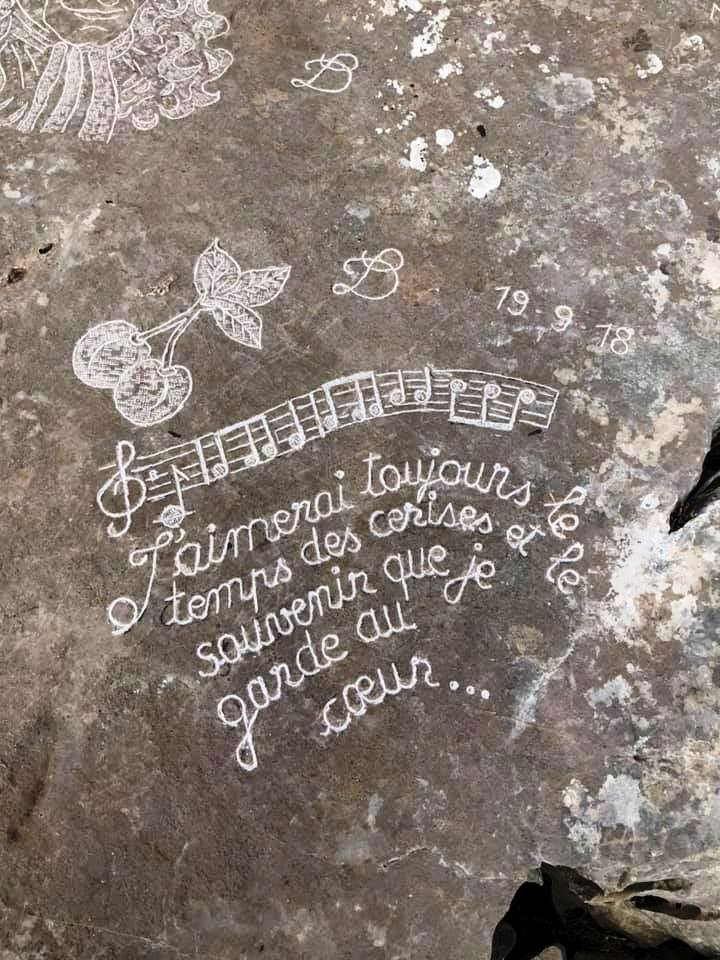 B
B
19.9.18
J'aimerai toujours le
temps des cerises et le
souvenir que je
garde au
cœur...